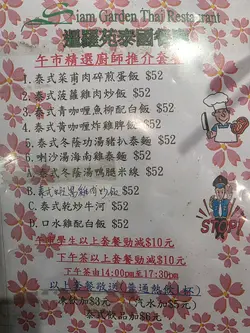 Siam Garden Thai Restaurant
暹羅苑泰國餐廳
午市精選廚師推介套餐
1.泰式菜甫肉碎煎蛋飯 $52
2.泰式菠蘿雞肉炒飯 $52
3.泰式青咖喱魚柳配白飯 $52
4.泰式黃咖喱炸雞脾飯 $52
5.泰式冬蔭功湯豬扒泰麵 $52
6.喇沙湯海南雞泰麵 $52
泰式冬蔭湯鴨腿米線 $52
雞肉炒飯 $52
C.泰式乾炒牛河 $52
D.口水雞配白飯 $52
STOP!
午市學生以上套餐勁減$10元
下午茶以上套餐勁減$10元
下午茶由14:00pm至17:30pm
以上套餐敬送(普通熱飲1杯)
凍飲加$3元 (汽水加$5元)
泰式飲品加$6元